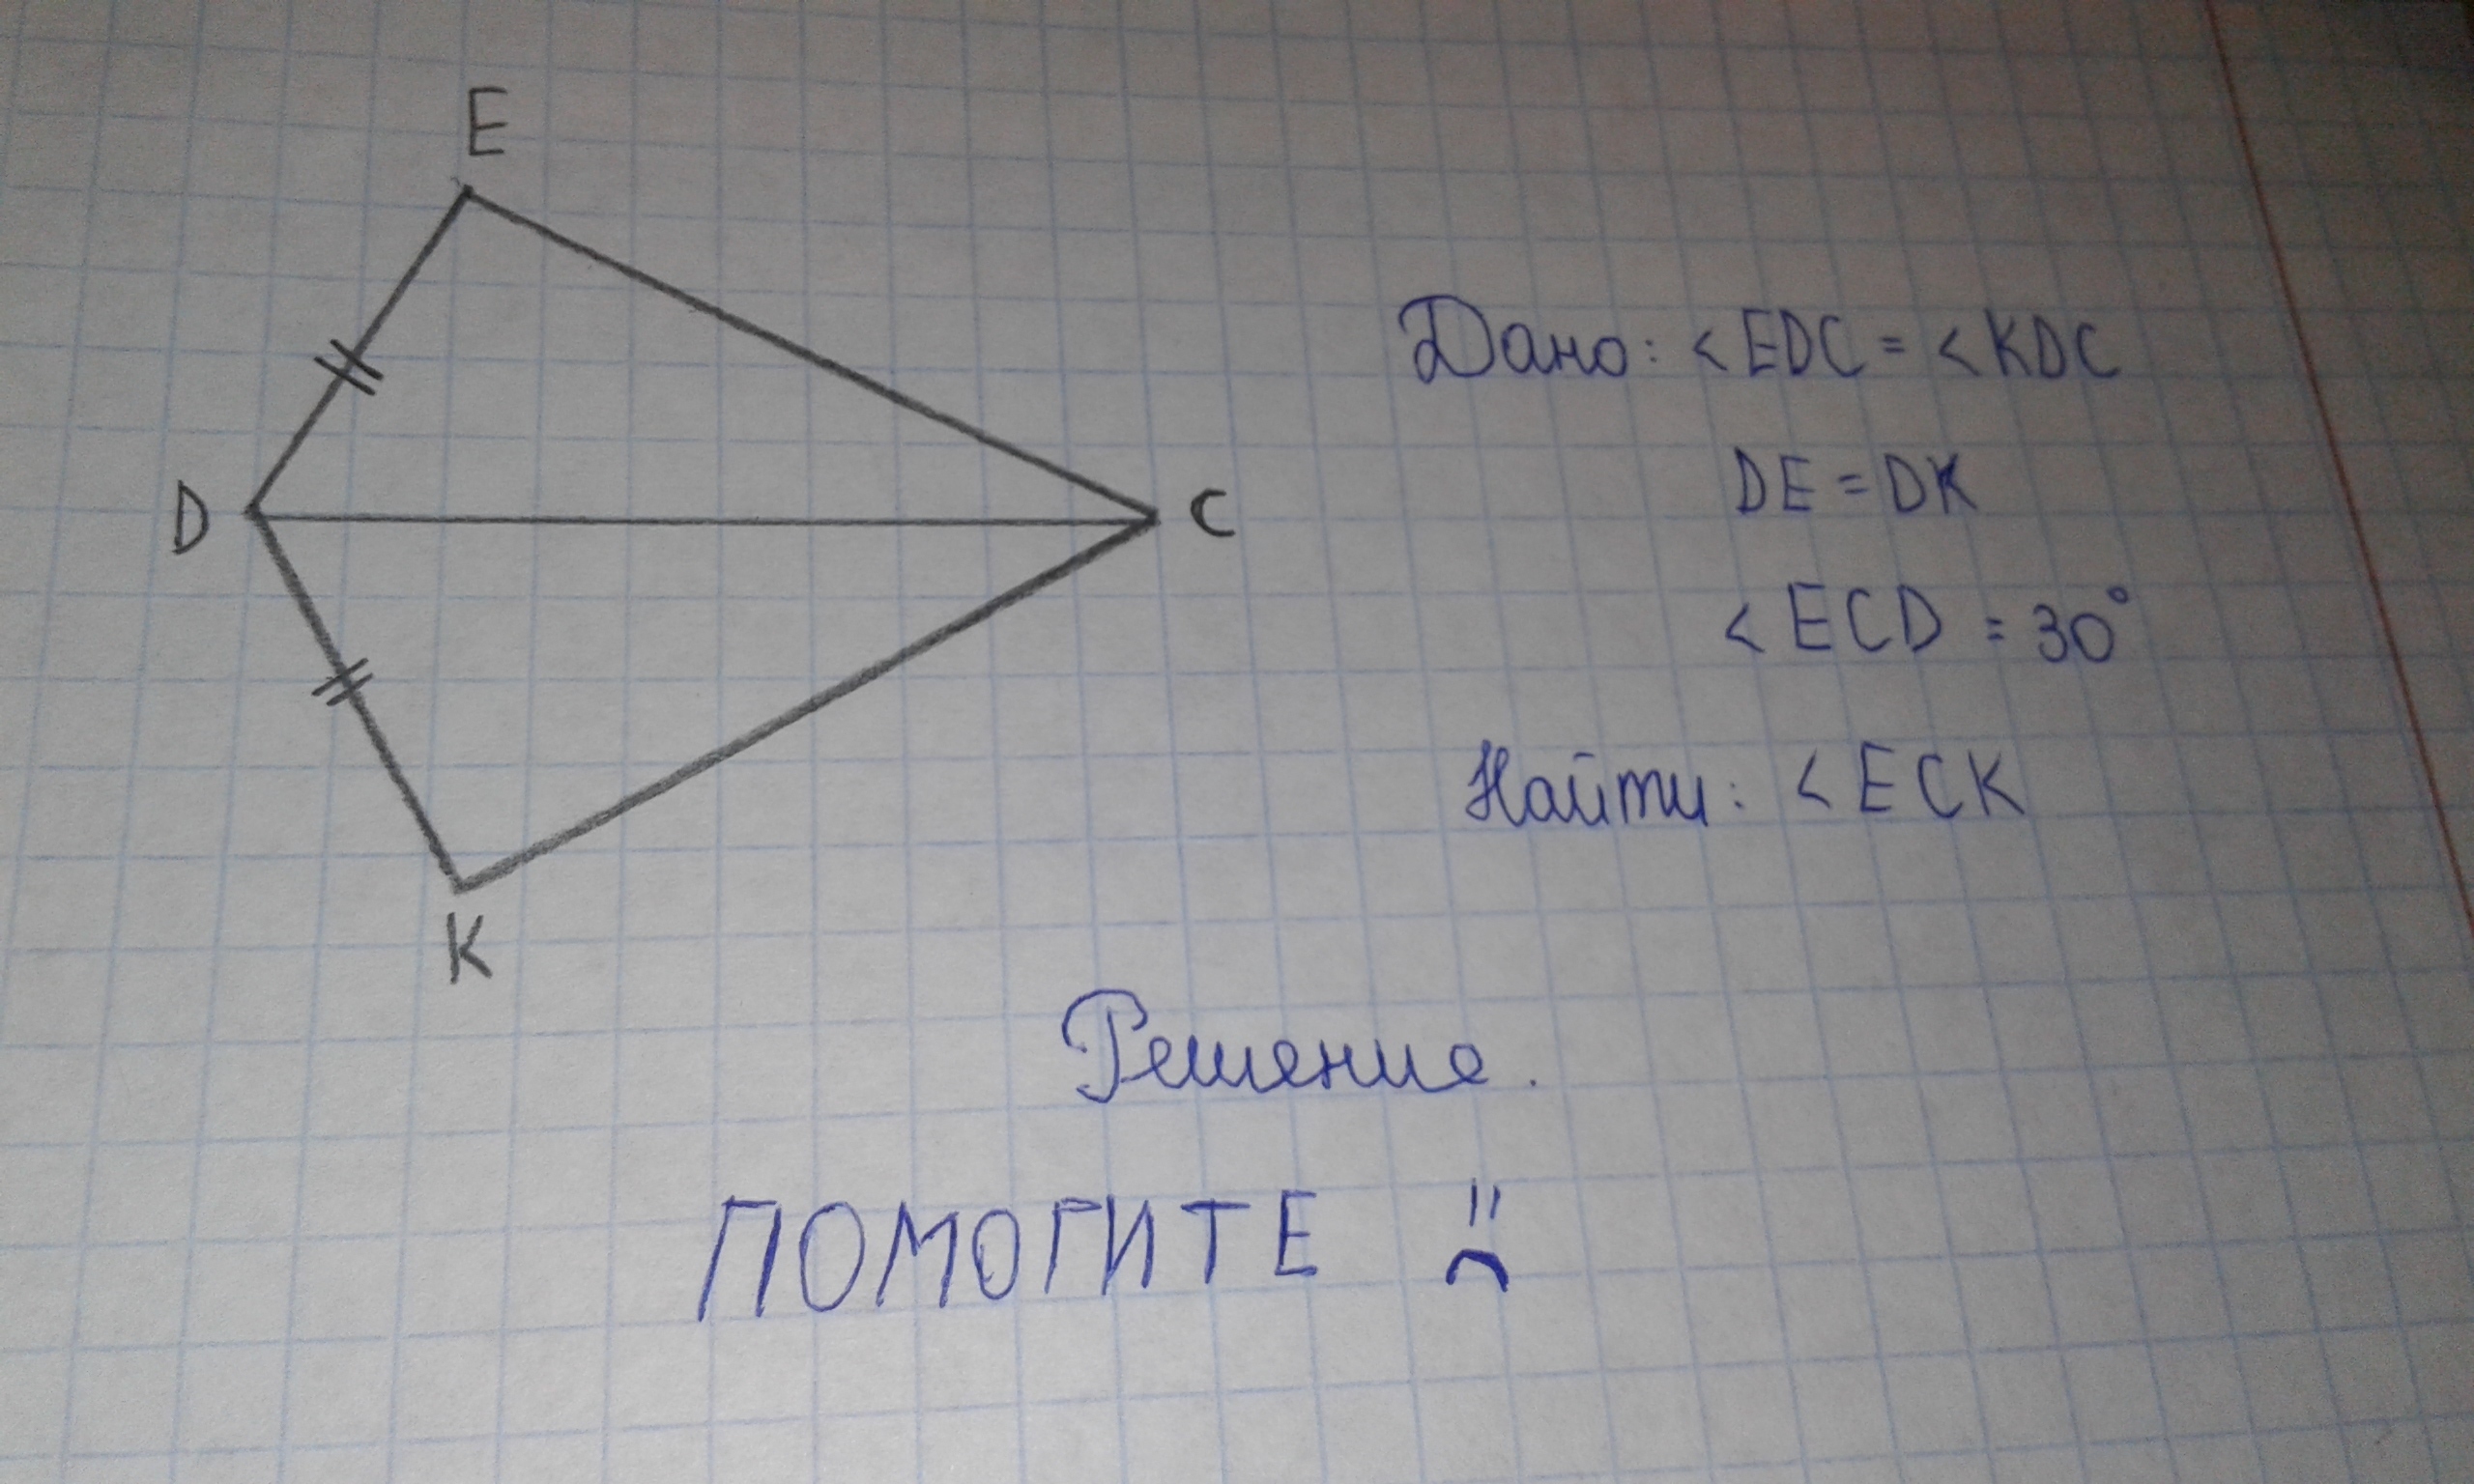 E
D
C
K
Дано: < EDC = < KDC
DE = DK
< ECD = 30°
Найти: < ECK
Решение.
ПОМОГИТЕ